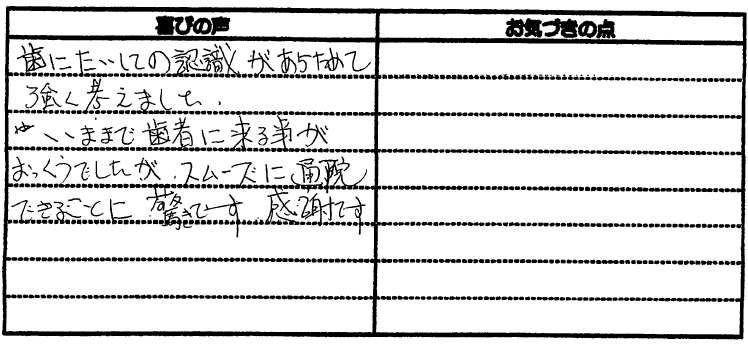 喜びの声
お気づきの点
歯にたいしての認識があらためて
強く考えました。
いままで歯者に来る事が
おっくうでしたが、スムーズに通院
できることに驚きです 感謝です